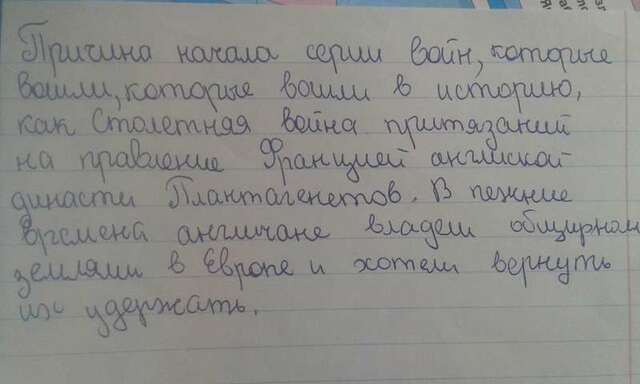 Причина начала серии войн, которые
вошли, которые вошли в историю,
как Столетняя война притязаний
на правление Францией английской
династи Плантагенетов. В пежние
времена англичане владели обширном
землями в Европе и хотели вернуть
их удержать.